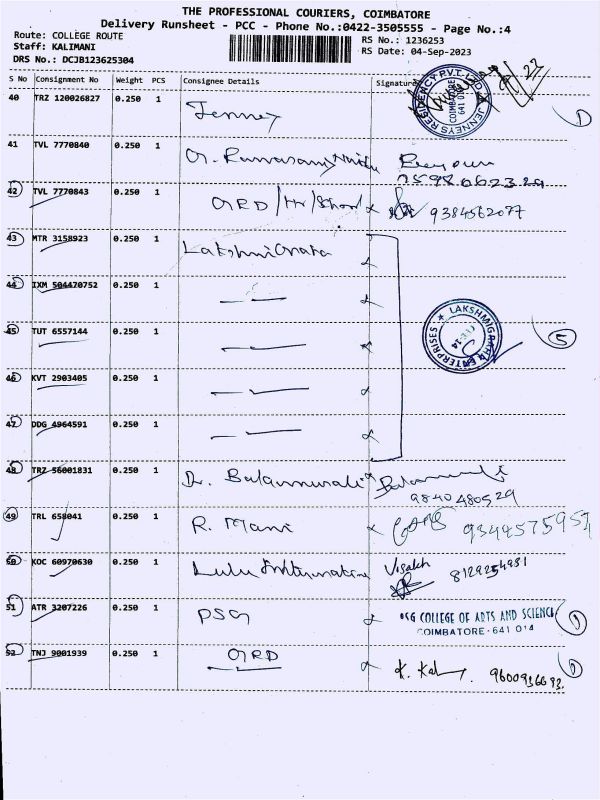 THE PROFESSIONAL COURIERS, COIMBATORE
Delivery Runsheet - PCC - Phone No.:0422-3505555 - Page No.:4
Route: COLLEGE ROUTE
Staff: KALIMANI
DRS No.: DCJB123625304
RS No.: 1236253
RS Date: 04-Sep-2023
S No Consignment No Weight PCS Consignee Details Signature
40 TRZ 120026827 0.250 1 Jenney
JENNEYS RESIDENCY PVT. LTD COIMBATORE 641 014
41 TVL 7770840 0.250 1 G. Ramasamy Naidu
42 TVL 7770843 0.250 1 GRD / Hr / School 9384562077
43 MTR 3158923 0.250 1 Lakshmi
44 IXM 504470752 0.250 1 — " —
45 TUT 6557144 0.250 1
LAKSHMIGRAHA ENTERPRISES
5
46 KVT 2903405 0.250 1
47 DDG 4964591 0.250 1
48 TRZ 56001831 0.250 1 D. Balamurali Balamurali
9840480529
49 TRL 658041 0.250 1 R. Mani
50 KOC 60970630 0.250 1 Lulu International Visakh 8129254931
51 ATR 3207226 0.250 1 PSG PSG COLLEGE OF ARTS AND SCIENCE
COIMBATORE - 641 014
52 TNJ 9001939 0.250 1 GRD